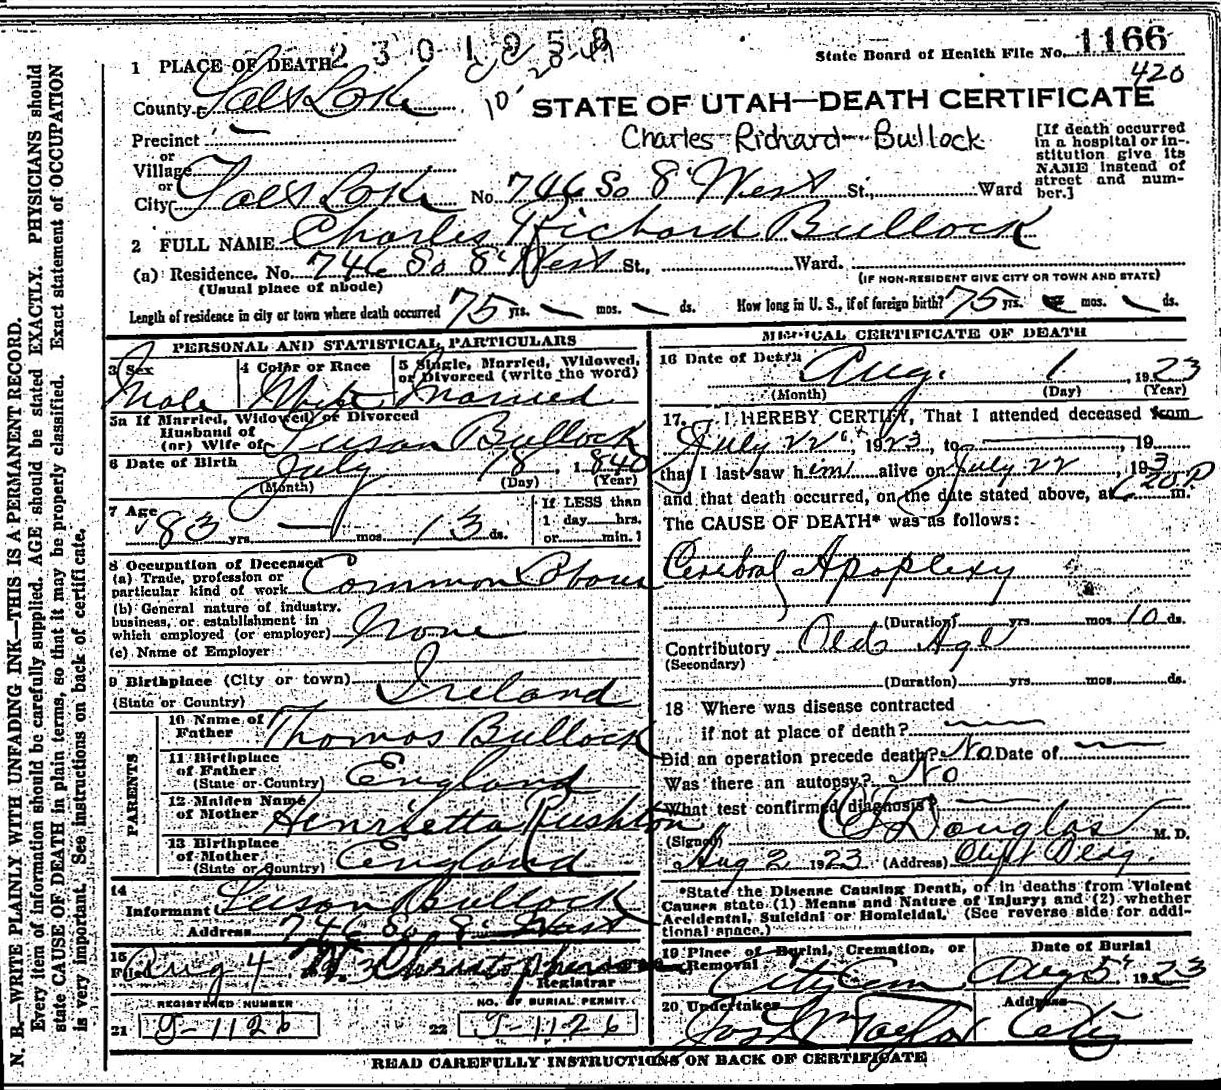 2301058
10-20-47
State Board of Health File No. 1166
420
1 PLACE OF DEATH
County Salt Lake
STATE OF UTAH—DEATH CERTIFICATE
Charles Richard Bullock
Precinct —
or
Village
or
City Salt Lake No. 746 So 8" West St., Ward
[If death occurred
in a hospital or in-
stitution give its
NAME instead of
street and num-
ber.]
2 FULL NAME Charles Richard Bullock
(a) Residence. No. 746 So 8" West St., Ward.
(Usual place of abode) (IF NON-RESIDENT GIVE CITY OR TOWN AND STATE)
Length of residence in city or town where death occurred 75 yrs. — mos. — ds. How long in U. S., if of foreign birth? 75 yrs. mos. — ds.
PERSONAL AND STATISTICAL PARTICULARS
3 Sex
Male
4 Color or Race
White
5 Single, Married, Widowed,
or Divorced (write the word)
Married
5a If Married, Widowed, or Divorced
Husband of
(or) Wife of Susan Bullock
6 Date of Birth July 18, 1840
(Month) (Day) (Year)
7 Age
83 yrs. — mos. 13 ds.
If LESS than
1 day hrs.
or min.?
8 Occupation of Deceased
(a) Trade, profession or
particular kind of work Common
(b) General nature of industry,
business, or establishment in
which employed (or employer) None
(c) Name of Employer
9 Birthplace (City or town)
(State or Country) Ireland
PARENTS
10 Name of
Father Thomas Bullock
11 Birthplace
of Father England
(State or Country)
12 Maiden Name
of Mother Henrietta Rushton
13 Birthplace
of Mother England
(State or Country)
14
Informant Susan Bullock
Address 746 So. 8" West
15
Filed Aug 4
Registrar
REGISTERED NUMBER
21 J-1126
NO. OF BURIAL PERMIT
22 J-1126
MEDICAL CERTIFICATE OF DEATH
16 Date of Death Aug. 1, 1923
(Month) (Day) (Year)
17. I HEREBY CERTIFY, That I attended deceased from
July 22", 1923, to —, 19
that I last saw him alive on July 22, 193
and that death occurred, on the date stated above, at 620 P m.
The CAUSE OF DEATH* was as follows:
Cerebral Apoplexy
(Duration) yrs. mos. 10 ds.
Contributory Old Age
(Secondary)
(Duration) yrs. mos. ds.
18 Where was disease contracted
if not at place of death? —
Did an operation precede death? No Date of —
Was there an autopsy? No
What test confirmed diagnosis? —
(Signed) Douglas M. D.
Aug 2 1923 (Address) Clift Bldg.
*State the Disease Causing Death, or in deaths from Violent
Causes state (1) Means and Nature of Injury; and (2) whether
Accidental, Suicidal or Homicidal. (See reverse side for addi-
tional space.)
19 Place of Burial, Cremation, or
Removal
City Cem
Date of Burial
Aug 5" 1923
20 Undertaker
Jos Wm Taylor
Address
City
READ CAREFULLY INSTRUCTIONS ON BACK OF CERTIFICATE
N. B.—WRITE PLAINLY WITH UNFADING INK—THIS IS A PERMANENT RECORD.
Every item of information should be carefully supplied. AGE should be stated EXACTLY. PHYSICIANS should
state CAUSE OF DEATH in plain terms, so that it may be properly classified. Exact statement of OCCUPATION
is very important. See instructions on back of certificate.